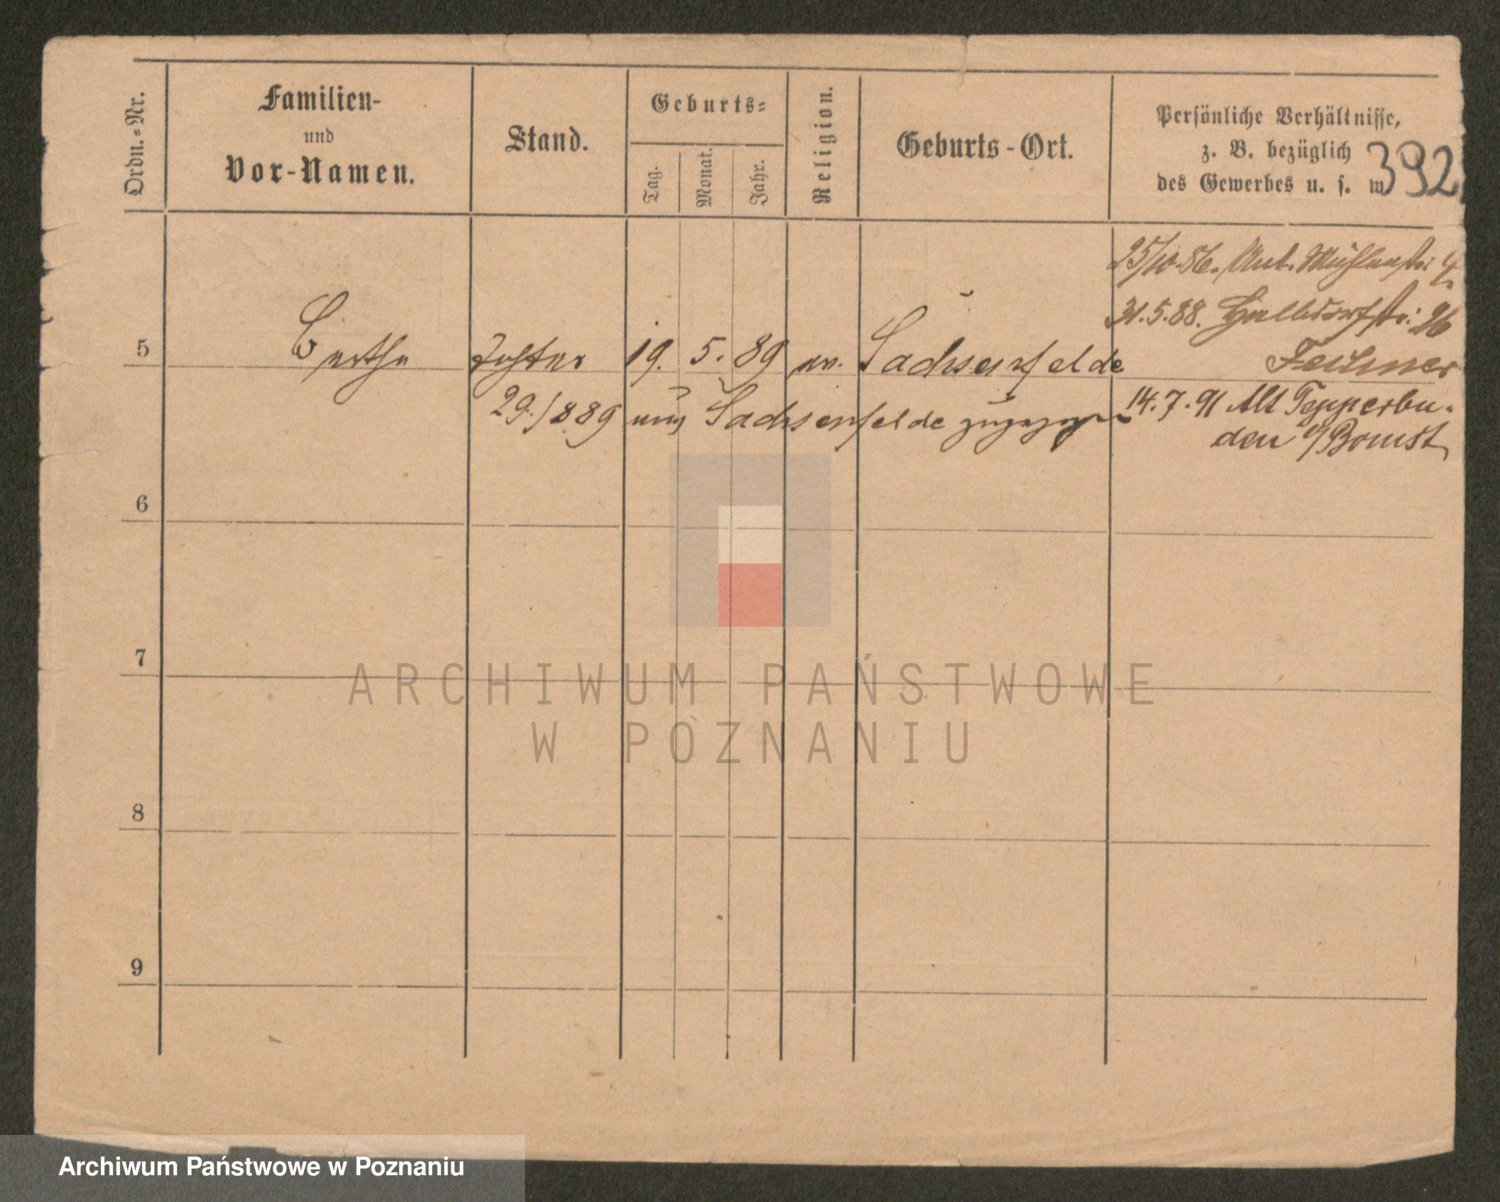 Ordn.-Nr.
Familien-
und
Vor-Namen.
Stand.
Geburts-
Tag.
Monat.
Jahr.
Religion.
Geburts-Ort.
Persönliche Verhältnisse,
z. B. bezüglich
des Gewerbes u. s. w
392
25/10.86. Mühlenstr: 4
31.5.88. Halbdorfstr: 26
Feichner
5 Berthe Tochter 19. 5. 89 ev. Sachsenfelde
29./8 89 aus Sachsenfelde zugezogen
14.7.91 Alt Tepperbu-
den b/Bomst
6
7
8
9
ARCHIWUM PAŃSTWOWE
W POZNANIU
Archiwum Państwowe w Poznaniu